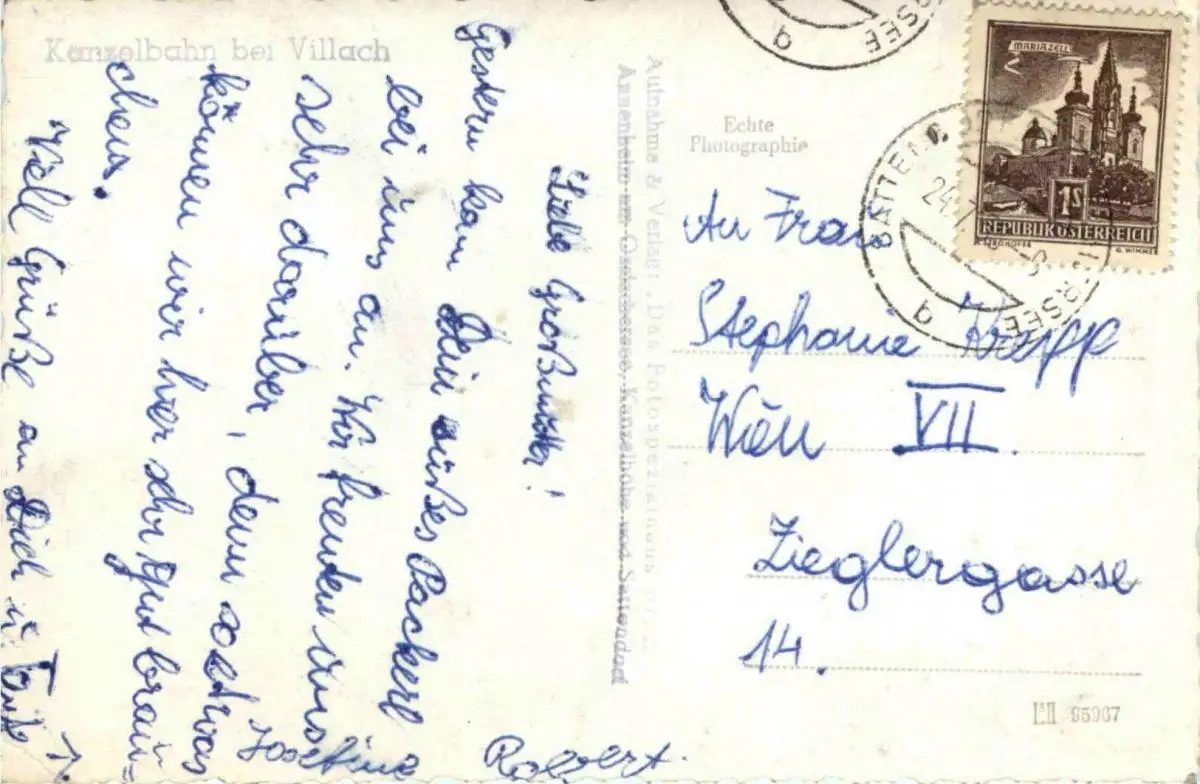 Kanzelbahn bei Villach
Liebe Großmutter!
Gestern kam Dein süßes Packerl
bei uns an. Wir freuten uns
sehr darüber, denn so etwas
können wir hier sehr gut brau-
chen.
Viell Grüße an Dich u. Tante
Josefine
Robert.
Aufnahme & Verlag: „Das Fotospezialhaus
Annenheim am Ossiachersee, Kanzelhöhe und Sattendorf
Echte
Photographie
MARIAZELL
1S
REPUBLIK ÖSTERREICH
G. WIMMER
SATTENDORF
24.
b
An Frau
Stephanie Krepp
Wien VII.
Zieglergasse
14.
95967